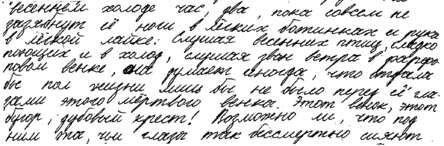 весеннем холоде час, два, пока совсем не
зазябнут её ноги в лёгких ботинках и рука
в узкой лайке. Слушая весенних птиц, сладко
поющих и в холод, слушая звон ветра в фарфо-
ровом венке, она думает иногда, что отдала
бы пол жизни лишь бы не было перед её гла-
зами этого мёртвого венка. Этот венок, этот
бугор, дубовый крест! Возможно ли, что под
ним та, чьи глаза так бессмертно сияют